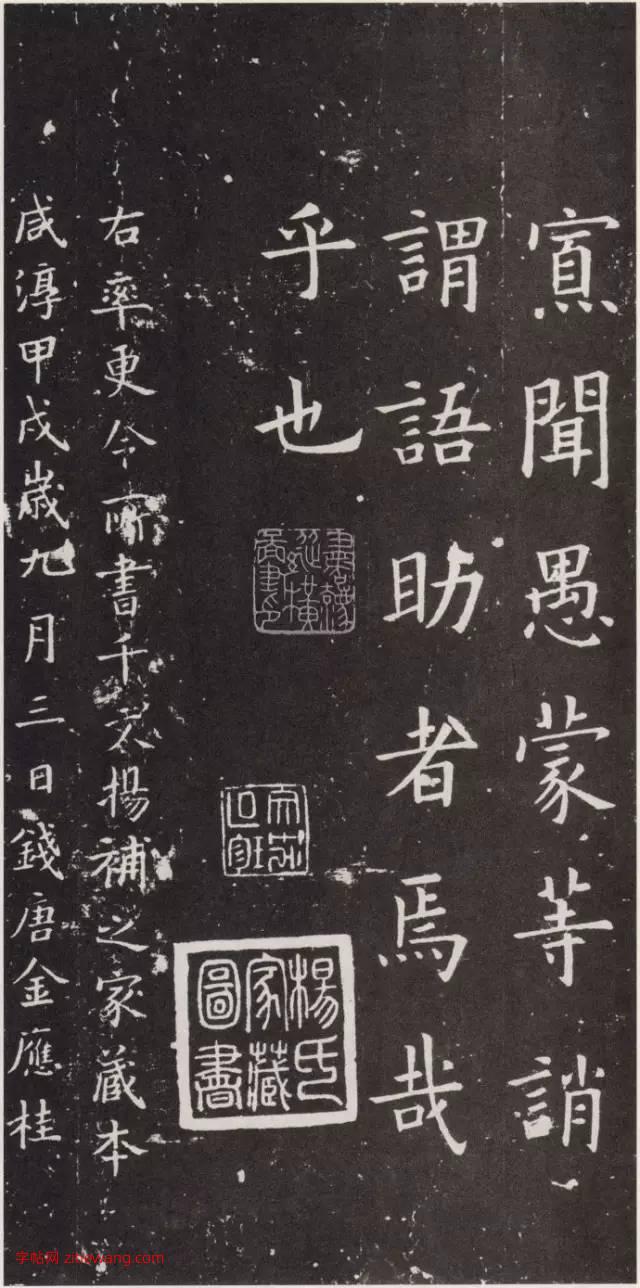 寡聞愚蒙等誚
謂語助者焉哉
乎也
楊氏家藏圖書
右率更令所書千文揚補之家藏本
咸淳甲戌歲九月三日錢唐金應桂
字帖网 zitiewang.com